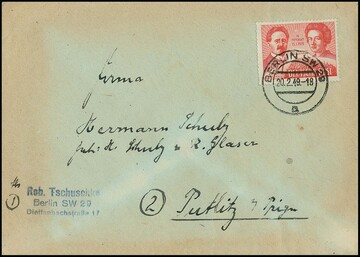 BERLIN SW 29
20.2.49.-18
a
Firma
Hermann Schulz
Inh. H. Schulz u. R. Glaser
Rob. Tschuschke
Berlin SW 29
Dieffenbachstraße 17
1
2 Putlitz